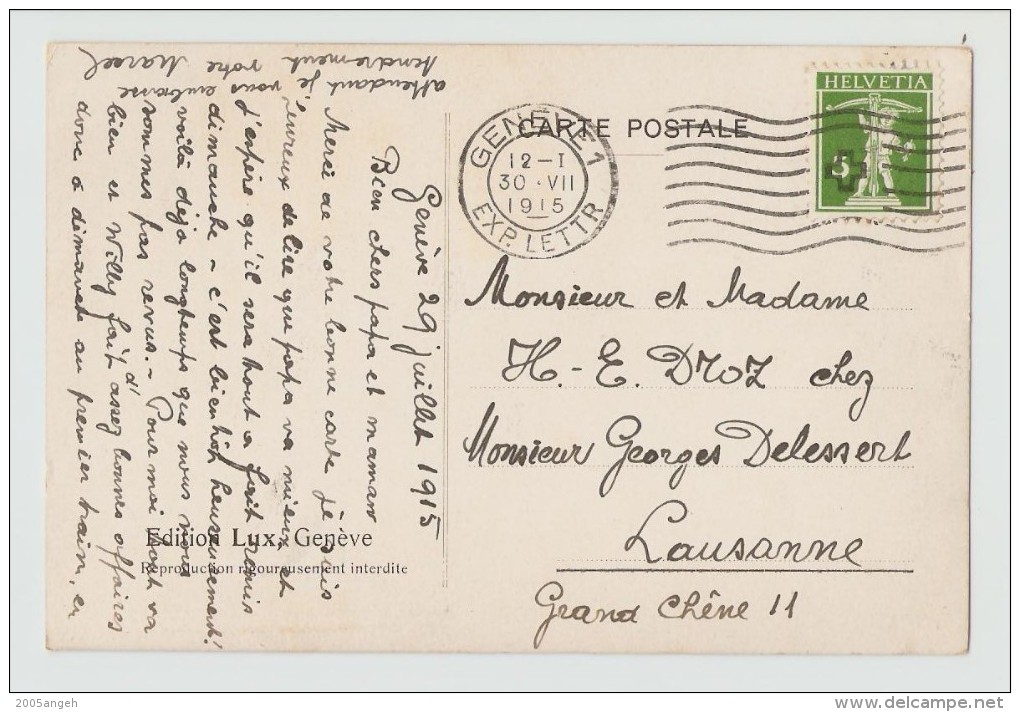 CARTE POSTALE
HELVETIA
5
GENÈVE 1
12-I
30·VII
1915
EXP. LETTR.
Monsieur et Madame
H.-E. Droz chez
Monsieur Georges Delessert
Lausanne
Grand Chêne 11
Genève 29 juillet 1915
Bien chers papa et maman
Merci de votre bonne carte je suis
heureux de lire que papa va mieux et
j'espère qu'il sera tout à fait remis
dimanche - c'est bientôt heureusement!
voilà déja longtemps que nous nous
sommes pas revus. - Pour moi tout va
bien et Willy fait d'assez bonnes affaires
donc à dimanche au premier train, en
attendant je vous embrasse
tendrement votre Marcel
Edition Lux, Genève
Reproduction rigoureusement interdite
2005angeh
delcampe.net